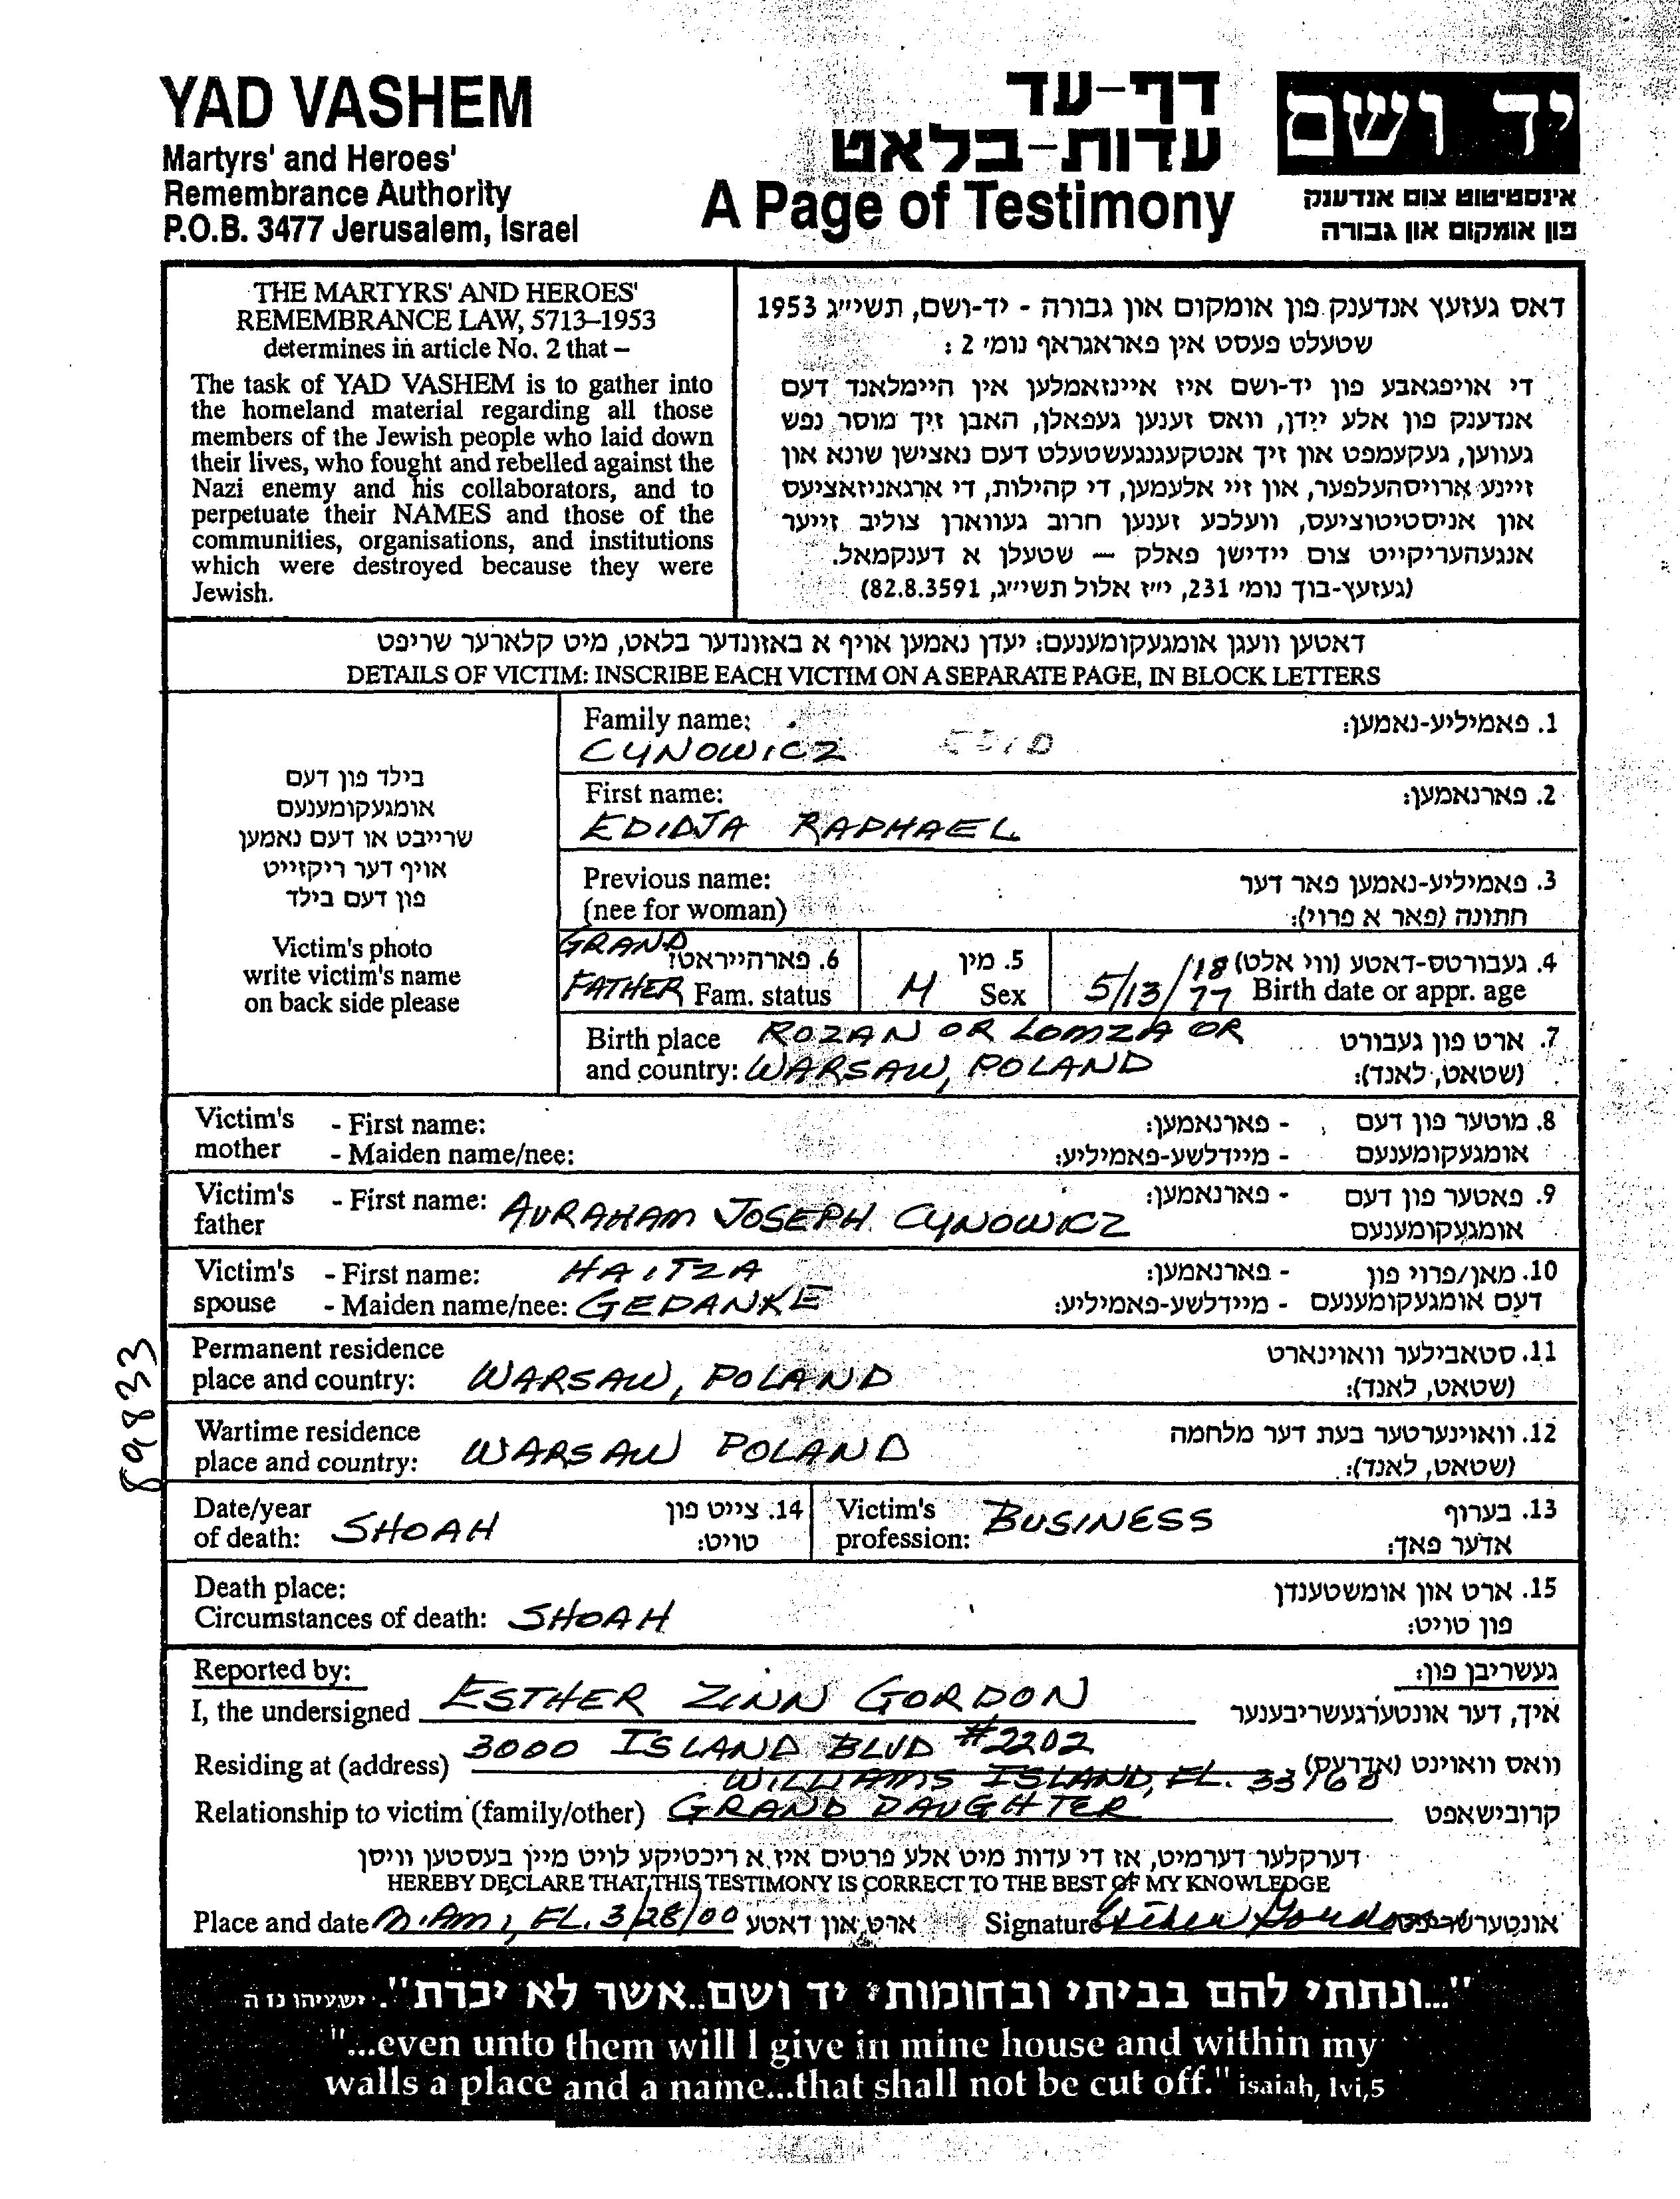 YAD VASHEM
Martyrs' and Heroes'
Remembrance Authority
P.O.B. 3477 Jerusalem, Israel
דף-עד
עדות-בלאט
A Page of Testimony
יד ושם
אינסטיטוט צום אנדענק
פון אומקום און גבורה
THE MARTYRS' AND HEROES'
REMEMBRANCE LAW, 5713–1953
determines in article No. 2 that –
The task of YAD VASHEM is to gather into
the homeland material regarding all those
members of the Jewish people who laid down
their lives, who fought and rebelled against the
Nazi enemy and his collaborators, and to
perpetuate their NAMES and those of the
communities, organisations, and institutions
which were destroyed because they were
Jewish.
דאס געזעץ אנדענק פון אומקום און גבורה - יד-ושם, תשי״ג 1953
שטעלט פעסט אין פאראגראף נומ׳ 2 :
די אויפגאבע פון יד-ושם איז איינזאמלען אין היימלאנד דעם
אנדענק פון אלע יידן, וואס זענען געפאלן, האבן זיך מוסר נפש
געווען, געקעמפט און זיך אנטקעגנגעשטעלט דעם נאצישן שונא און
זיינע ארויסהעלפער, און זיי אלעמען, די קהילות, די ארגאניזאציעס
און אניסטיטוציעס, וועלכע זענען חרוב געווארן צוליב זייער
אנגעהעריקייט צום יידישן פאלק — שטעלן א דענקמאל.
(געזעץ-בוך נומ׳ 231, י״ז אלול תשי״ג, 82.8.3591)
דאטען וועגן אומגעקומענעם: יעדן נאמען אויף א באזונדער בלאט, מיט קלארער שריפט
DETAILS OF VICTIM: INSCRIBE EACH VICTIM ON A SEPARATE PAGE, IN BLOCK LETTERS
בילד פון דעם
אומגעקומענעם
שרייבט או דעם נאמען
אויף דער ריקזייט
פון דעם בילד
Victim's photo
write victim's name
on back side please
Family name: 1. פאמיליע-נאמען:
CYNOWICZ
First name: 2. פארנאמען:
EDIDJA RAPHAEL
Previous name: 3. פאמיליע-נאמען פאר דער
(nee for woman) חתונה (פאר א פרוי):
GRAND 6. פארהייראט? 5. מין /'18 4. געבורטס-דאטע (ווי אלט)
FATHER Fam. status M Sex 5/13/77 Birth date or appr. age
Birth place ROZAN OR LOMZIA OR 7. ארט פון געבורט
and country: WARSAW, POLAND (שטאט, לאנד):
Victim's - First name: - פארנאמען: 8. מוטער פון דעם
mother - Maiden name/nee: - מיידלשע-פאמיליע: אומגעקומענעם
Victim's - First name: AVRAHAM JOSEPH CYNOWICZ - פארנאמען: 9. פאטער פון דעם
father אומגעקומענעם
Victim's - First name: HAITZA - פארנאמען: 10. מאן/פרוי פון
spouse - Maiden name/nee: GEDANKE - מיידלשע-פאמיליע: דעם אומגעקומענעם
Permanent residence 11. סטאבילער וואוינארט
place and country: WARSAW, POLAND (שטאט, לאנד):
Wartime residence 12. וואוינערטער בעת דער מלחמה
place and country: WARSAW POLAND (שטאט, לאנד):
89833
Date/year 14. צייט פון Victim's BUSINESS 13. בערוף
of death: SHOAH טויט: profession: אדער פאך:
Death place: 15. ארט און אומשטענדן
Circumstances of death: SHOAH פון טויט:
Reported by: געשריבן פון:
I, the undersigned ESTHER ZINN GORDON איך, דער אונטערגעשריבענער
Residing at (address) 3000 ISLAND BLVD #2202 וואס וואוינט (אדרעס)
WILLIAMS ISLAND, FL. 33160
Relationship to victim (family/other) GRAND DAUGHTER קרובישאפט
דערקלער דערמיט, אז די עדות מיט אלע פרטים איז א ריכטיקע לויט מיין בעסטען וויסן
HEREBY DECLARE THAT THIS TESTIMONY IS CORRECT TO THE BEST OF MY KNOWLEDGE
Place and date MIAMI, FL. 3/28/00 ארט און דאטע Signature Esther Gordon אונטערשריפט
"...ונתתי להם בביתי ובחומותי יד ושם...אשר לא יכרת". ישעיהו נו ה
"...even unto them will I give in mine house and within my
walls a place and a name...that shall not be cut off." isaiah, lvi,5